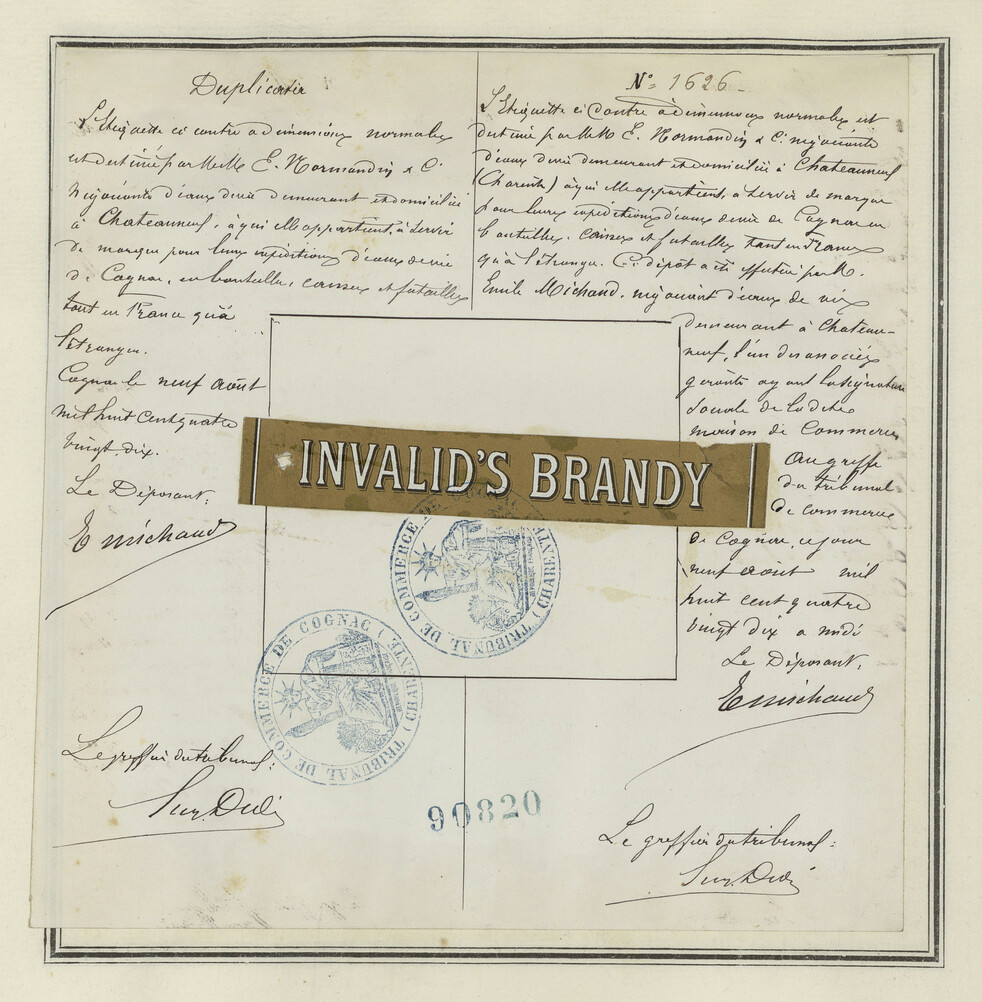 Duplicata
L'Etiquette ci contre a dimensions normales
est destiné par M.M. E. Normandin & Cie
négociants d'eaux de vie demeurant et domiciliés
à Chateauneuf, à qui elle appartient, à servir
de marque pour leurs expéditions d'eaux de vie
de Cognac, en bouteilles, caisses et futailles
tant en France qu'à
l'étranger.
Cognac le neuf août
mil huit cent quatre
vingt dix.
Le Déposant,
E Michaud
Le greffier du tribunal:
N° 1626
L'Etiquette ci contre à dimensions normales est
destiné par M.M. E. Normandin & Cie négociants
d'eaux de vie demeurant et domiciliés à Chateauneuf
(Charente) à qui elle appartient, à servir de marque
pour leurs expéditions d'eaux de vie de Cognac en
bouteilles, caisses et futailles tant en France
qu'à l'étranger. Ce dépôt a été effectué par M.
Emile Michaud, négociant d'eaux de vie
demeurant à Chateau-
neuf, l'un des associés
gérants ayant la signature
sociale de la dite
maison de Commerce
Au greffe
du tribunal
de commerce
de Cognac, ce jour
neuf août mil
huit cent quatre
vingt dix a midi
Le Déposant,
E Michaud
Le greffier du tribunal:
INVALID'S BRANDY
TRIBUNAL DE COMMERCE DE COGNAC (CHARENTE)
TRIBUNAL DE COMMERCE DE COGNAC (CHARENTE)
90820